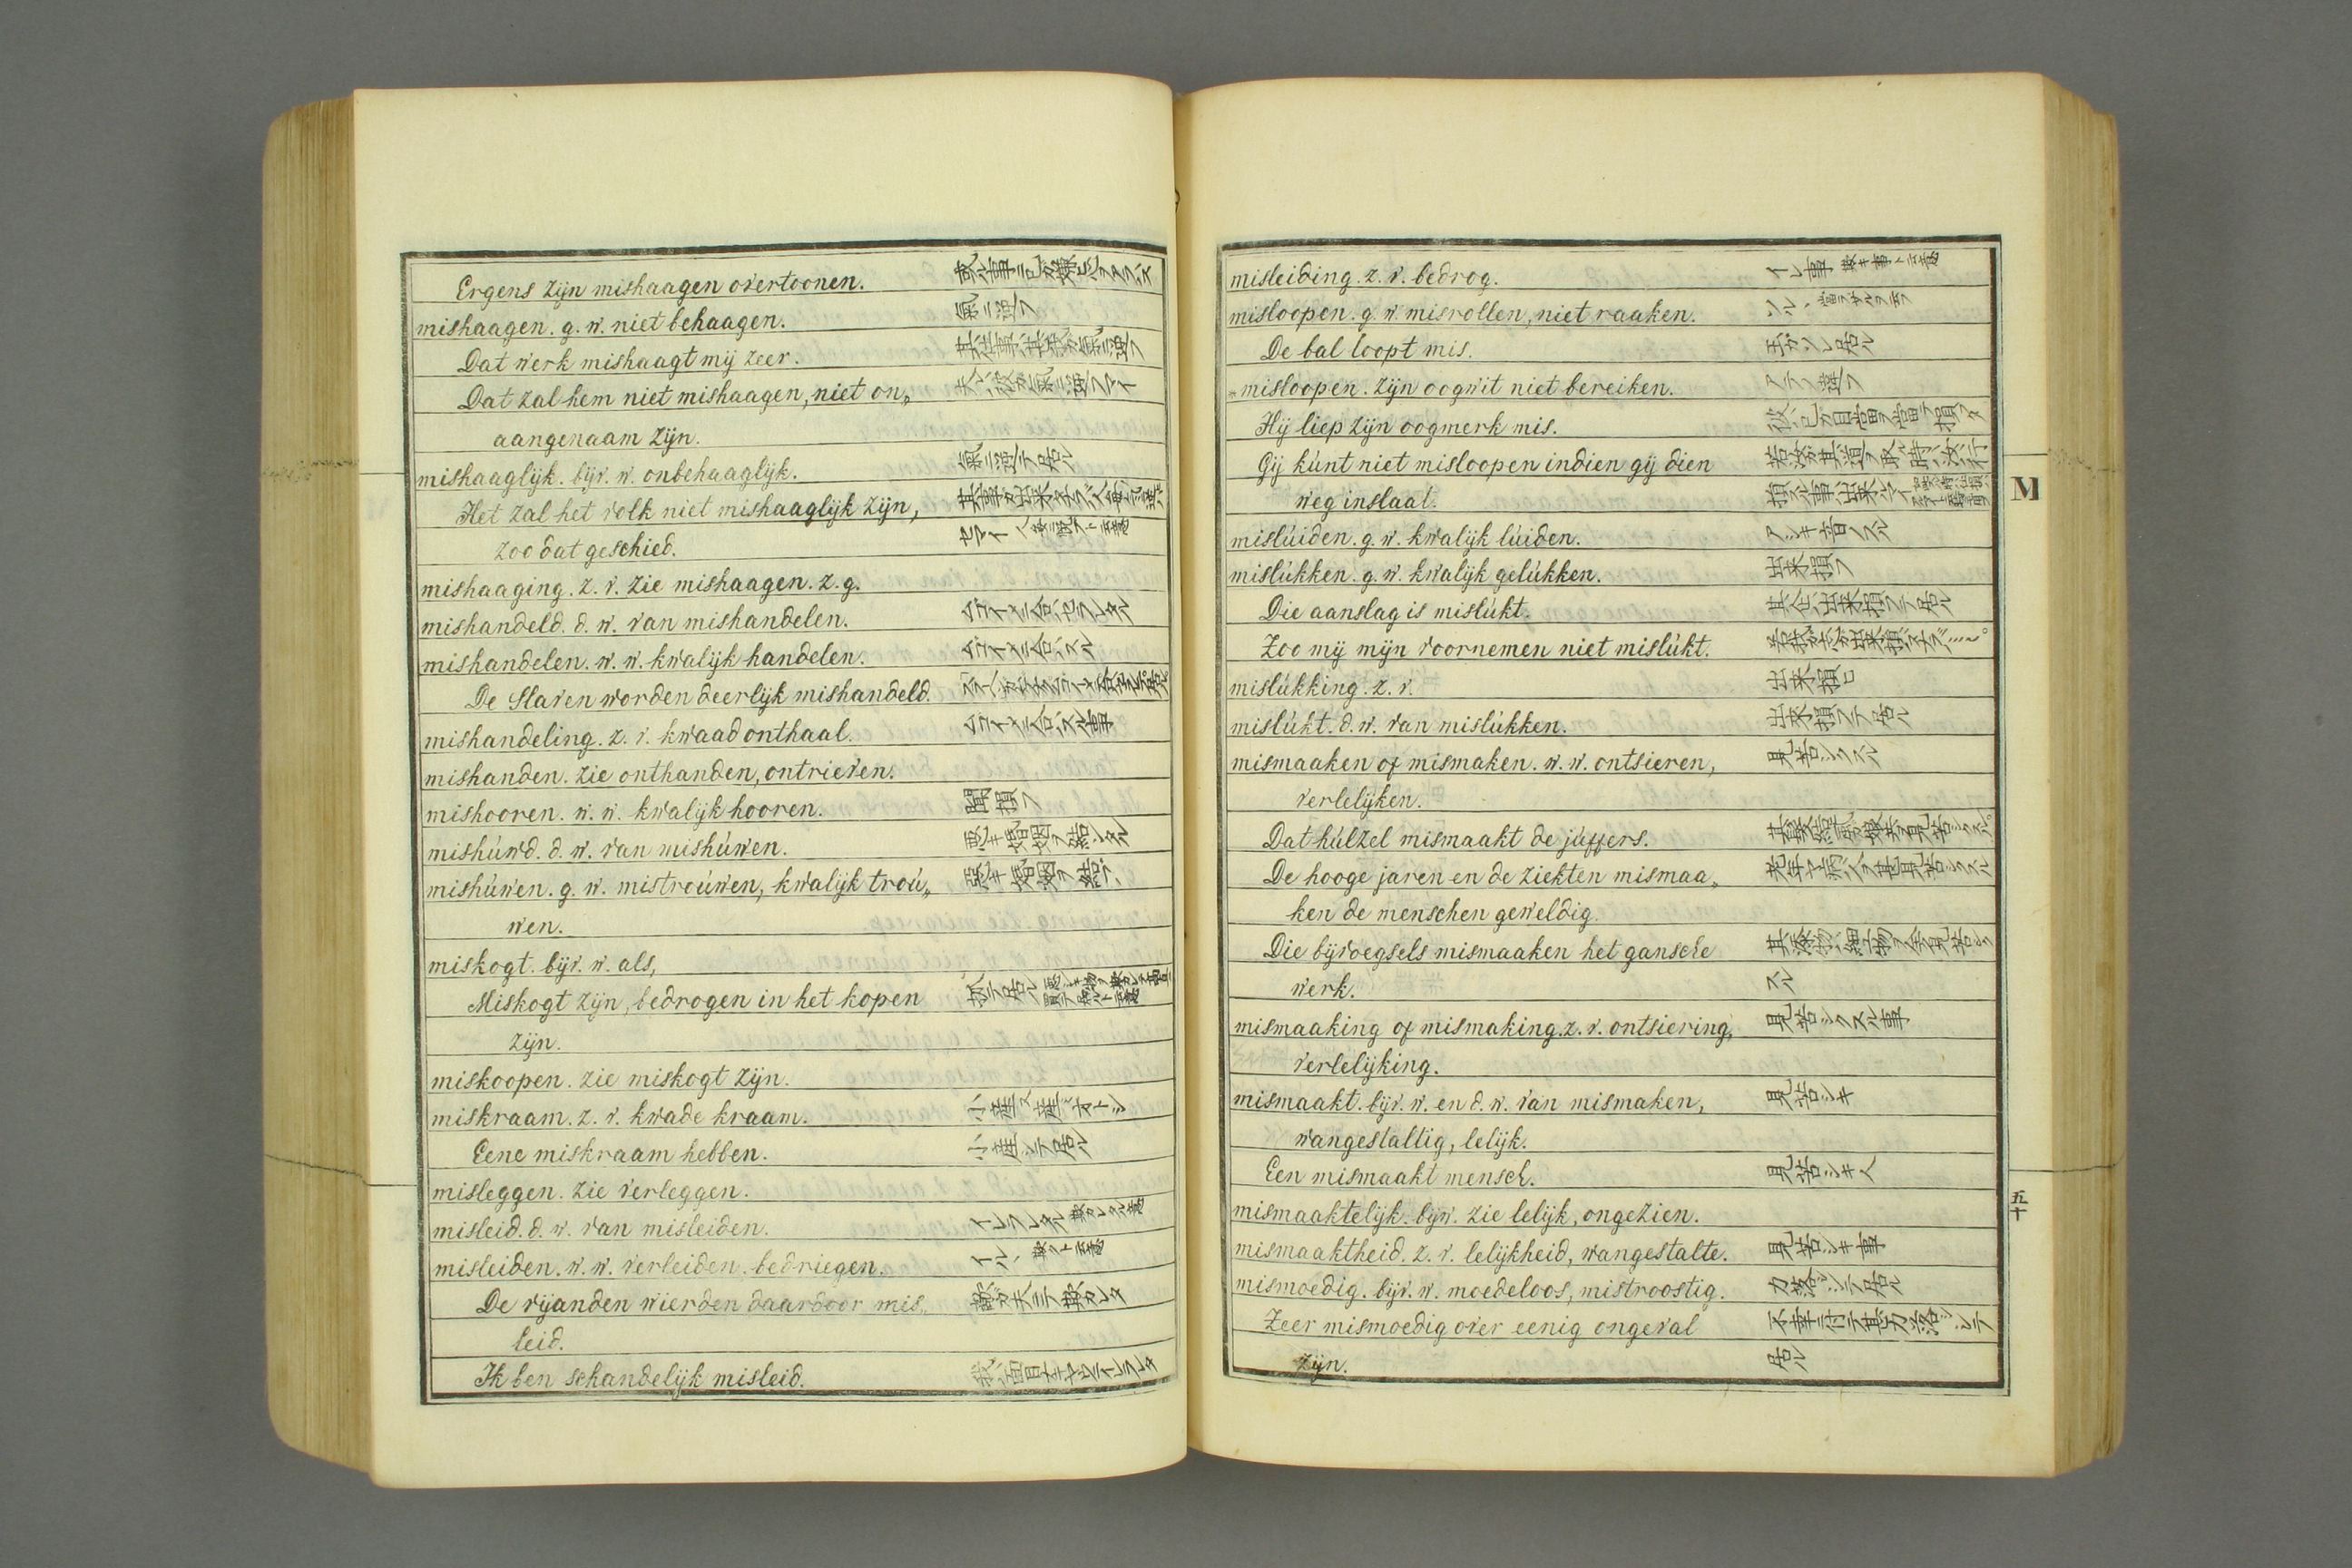 Ergens zijn mishaagen vertoonen.
mishaagen. g. w. niet behaagen. 氣ニ逆フ
Dat werk mishaagt mij zeer. 其仕事ハ甚我ガ氣ニ逆フ
Dat zal hem niet mishaagen, niet on„ 夫ハ彼ガ氣ニ逆フマイ
aangenaam zijn.
mishaaglijk. bijv. w. onbehaaglijk. 氣ニ逆テ居ル
Het zal het volk niet mishaaglijk zijn,
zoo dat geschied.
mishaaging. z. v. zie mishaagen. z. g.
mishandeld. d. w. van mishandelen.
mishandelen. w. w. kwalijk handelen.
De slaven worden deerlijk mishandeld.
mishandeling. z. v. kwaad onthaal.
mishanden. zie onthanden, ontrieven.
mishooren. w. w. kwalijk hooren. 聞損フ
mishúwd. d. w. van mishúwen. 悪キ婚姻ヲ結ンタル
mishúwen. g. w. mistroúwen, kwalijk troú„ 悪キ婚姻ヲ結ブ
wen.
miskogt. bijv. w. als,
Miskogt zijn, bedrogen in het kopen
zijn.
miskoopen. zie miskogt zijn.
miskraam. z. v. kwade kraam.
Eene miskraam hebben. 小産シテ居ル
misleggen. zie verleggen.
misleid. d. w. van misleiden.
misleiden. w. w. verleiden. bedriegen.
De vijanden wierden daardoor mis„ 敵ガ夫ニテ欺カレタ
leid.
Ik ben schandelijk misleid.
misleiding. z. v. bedrog.
misloopen. g. w. misrollen, niet raaken.
De bal loopt mis. 玉ガソレ居ル
*misloopen. zijn oogwit niet bereiken. アテノ違フ
Hij liep zijn oogmerk mis.
Gij kúnt niet misloopen indien gij dien
weg inslaat.
mislúiden. g. w. kwalijk lúiden. アシキ音ノスル
mislúkken. g. w. kwalijk gelúkken. 出来損フ
Die aanslag is mislúkt. 其企ハ出来損フテ居ル
Zoo mij mijn voornemen niet mislúkt.
mislúkking. z. v. 出来損ヒ
mislúkt. d. w. van mislúkken. 出来損フテ居ル
mismaaken of mismaken. w. w. ontsieren, 見苦シクスル
verlelijken.
Dat húlzel mismaakt de júffers.
De hooge jaren en de ziekten mismaa„
ken de menschen geweldig.
Die bijvoegsels mismaaken het gansche
werk. スル
mismaaking of mismaking. z. v. ontsiering, 見苦シクスル事
verlelijking.
mismaakt. bijv. w. en d. w. van mismaken, 見苦シキ
wangestaltig, lelijk.
Een mismaakt mensch. 見苦シキ人
mismaaktelijk. bijw. zie lelijk, ongezien.
mismaaktheid. z. v. lelijkheid, wangestalte. 見苦シキ事
mismoedig. bijv. w. moedeloos, mistroostig. 力落シテ居ル
Zeer mismoedig over eenig ongeval 不幸ニ付テ甚力落シテ
zijn. 居ル
M
五十